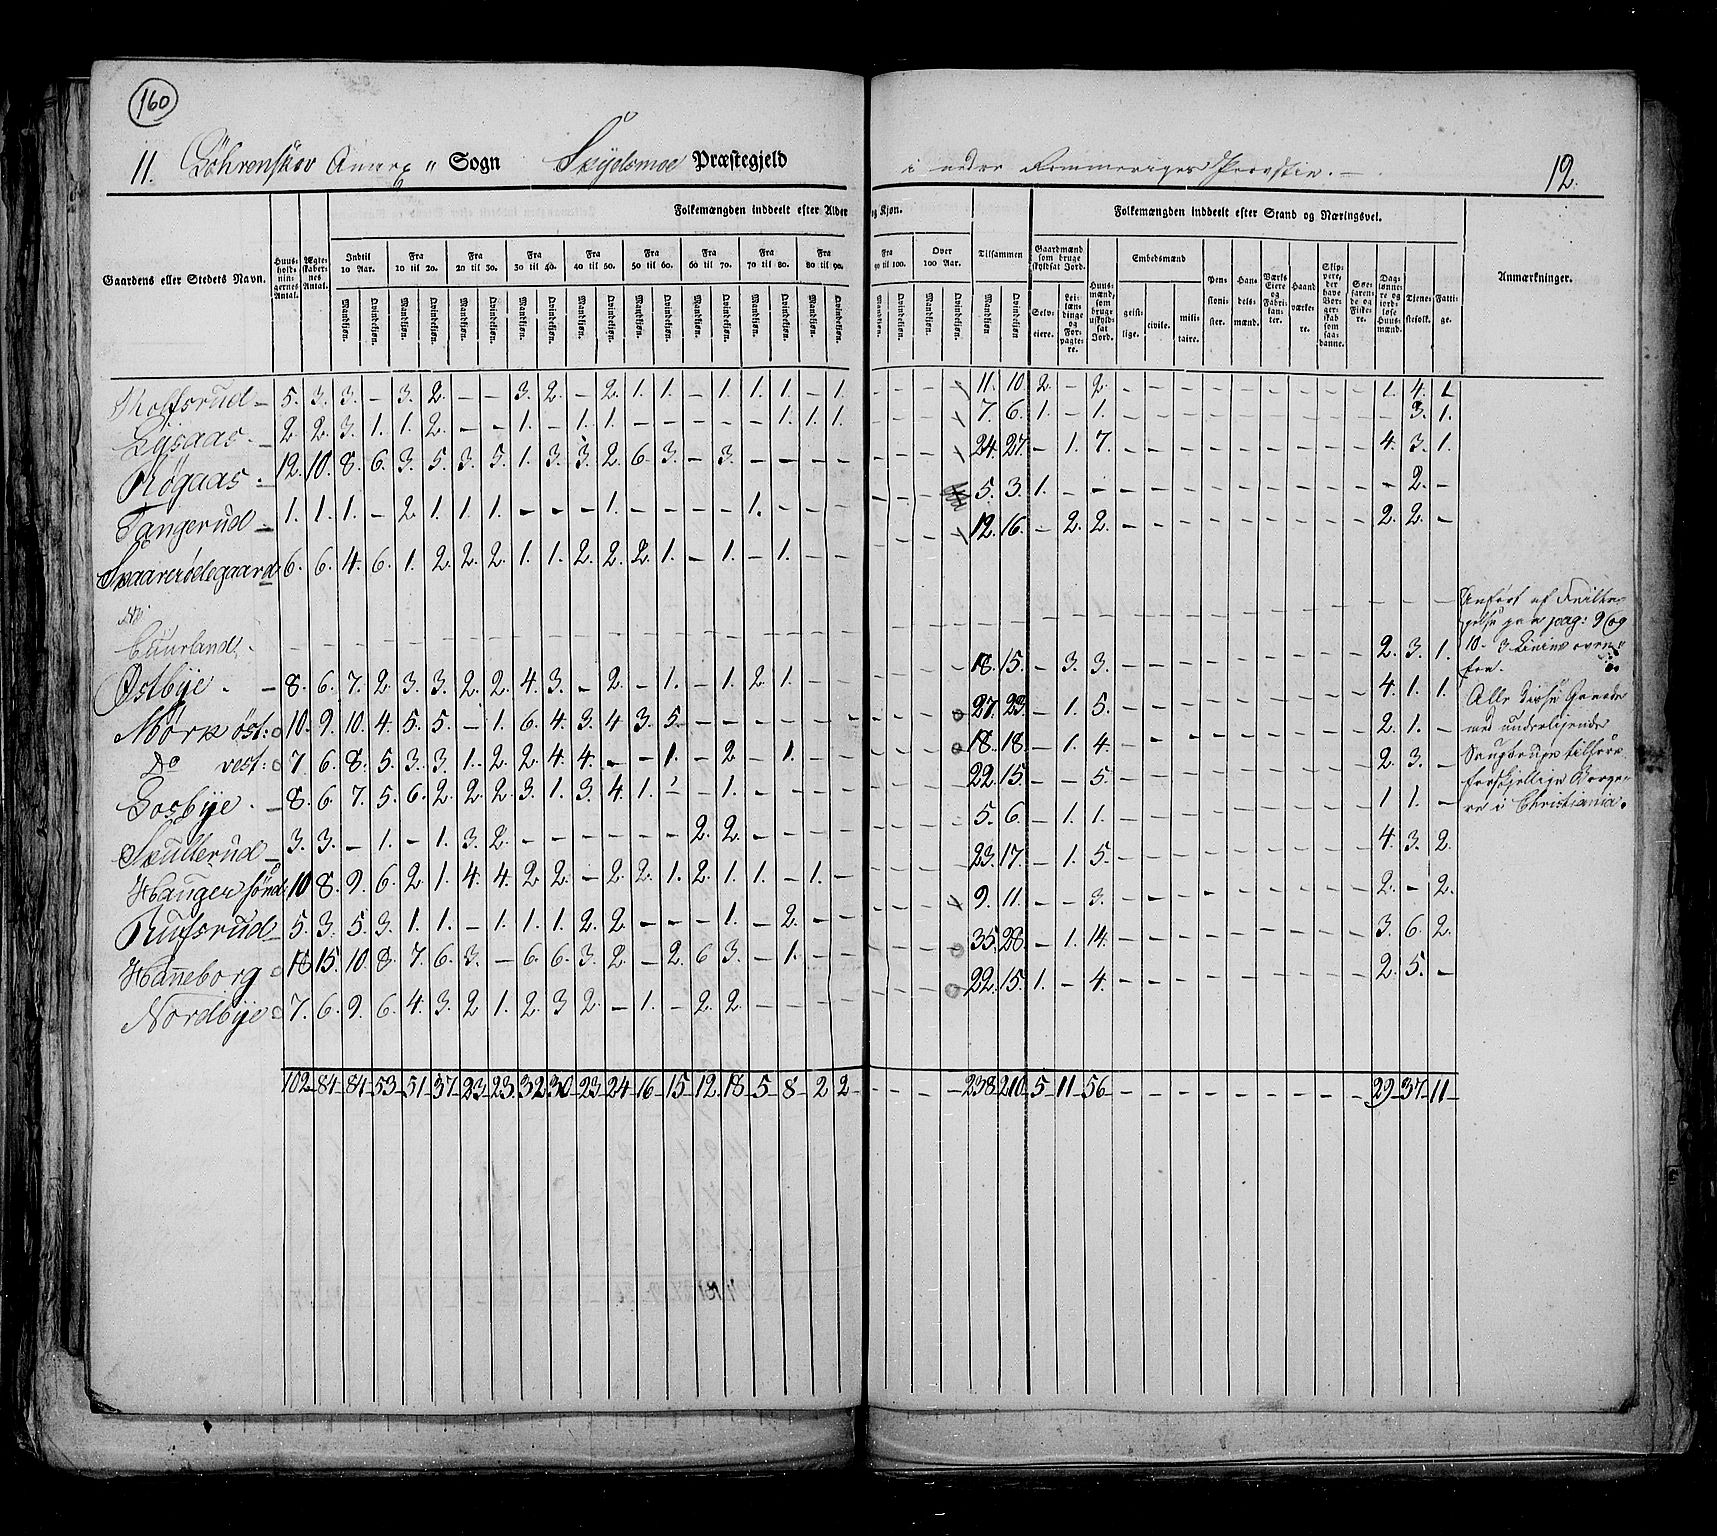 160
11. Løhrenskov Annex " Sogn Skydsmoe Præstegjeld i nedre Rommeriges Provstie. 12.
Gaardens eller Stedets Navn.
Huusholdningernes Antal.
Ægteskabernes Antal.
Folkemængden inddeelt efter Alder og Kjøn.
Indtil 10 Aar. Fra 10 til 20. Fra 20 til 30. Fra 30 til 40. Fra 40 til 50. Fra 50 til 60. Fra 60 til 70. Fra 70 til 80. Fra 80 til 90. Fra 90 til 100. Over 100 Aar. Tilsammen
Mandkjøn. Qvindekjøn.
Folkemængden inddeelt efter Stand og Næringsvei.
Gaardmænd som bruge skyldsat Jord.
Selveiere. Leilændinge og Forpagtere.
Huusmænd, som bruge uskyldsat Jord.
Embedsmænd
geistlige. civile. militaire.
Pensionister.
Handelsmænd.
Værks Eiere og Fabrikanter.
Haandværkere.
Skippere, der have Borgerskab som saadanne.
Søefarende og Fiskere.
Dagslønnere og jordløse Huusmænd.
Tjenestefolk.
Fattige.
Anmærkninger.
Rolfsrud – 5. 3. 3. – 3. 2. – – 3. 2. – 2. 1. 1. – 1. 1. 1. – 1. – – – 11. 10. 2. – 2. – – – – – – – – – 1. 4. 1.
Lysaas. – 2. 2. 3. 1. 1. 2. – – 1. – 1. 1. – – – – – 1. 1. 1. – – – 7. 6. 1. – 1. – – – – – – – – – – 3. 1.
Røgaas. – 12. 10. 8. 6. 3. 5. 3. 5. 1. 3. 3. 2. 6. 3. – 3. – – – – – – – 24. 27. – 1. 7. – – – – – – – – – 4. 3. 1.
Tangerud – 1. 1. 1. – 2. 1. 1. 1. – – – 1. – – – – 1. – – – – – – 5. 3. 1. – – – – – – – – – – – – 2. –
Svaarerødegaard 6. 6. 4. 6. 1. 2. 2. 2. 1. 1. 2. 2. 2. 1. – 1. – 1. – – – – – 12. 16. – 2. 2. – – – – – – – – – 2. 2. –
Cuurland. – – – – – – – – – – – – – – – – – – – –
Østbye. – 8. 6. 7. 2. 3. 3. 2. 2. 4. 3. – 2. – 1. – 1. 2. 1. – – – – – – 18. 15. – 3. 3. – – – – – – – – – 2. 3. 1.
Mørk øst. 10. 9. 10. 4. 5. 5. – 1. 6. 4. 3. 4. 3. 5. – – – – – – – – – 27. 23. – 1. 5. – – – – – – – – – 4. 1. 1.
Do vest. 7. 6. 8. 5. 3. 3. 1. 2. 2. 4. 4. – – 1. – 2. – 1. – – – – – 18. 18. – 1. 4. – – – – – – – – – 2. 1. –
Losbye. – 8. 6. 7. 5. 6. 2. 2. 2. 3. 1. 3. 4. 1. – – 1. – – – – – – – – 22. 15. – – 5. – – – – – – – – – 2. 3. –
Skullerud – 3. 3. – 1. – 1. 3. 2. – – – – – – 2. 2. – – – – – – – – 5. 6. – 1. 1. – – – – – – – – – 1. 1. –
Hauger sønd. 10 8. 9. 6. 2. 1. 4. 4. 2. 2. – 2. 2. 1. 2. 1. 1. – 1. – – – – – 23. 17. – 1. 5. – – – – – – – – – 4. 3. 2.
Rufsrud – 5. 3. 5. 3. 1. 1. – 1. 1. 1. 2. 2. – – – 1. – 2. – – – – – 9. 11. – – 3. – – – – – – – – – 2. – 2.
Hanneborg 18 15. 10. 8. 7. 6. 3. – 6. 6. 3. 2. – 2. 6 3. – 1. – – – – – 35. 28. – 1. 14. – – – – – – – – – 3. 6. 2.
Nordbye 7. 6. 9. 6. 4. 3. 2. 1. 2. 3. 2. – 1. – 2. 2. – – – – – – – 22. 15. 1. – 4. – – – – – – – – – 2. 5. –
102 – 84 – 84 – 53 – 51 – 37 – 23 – 23. 32 30 – 23 – 24 – 16 – 15 – 12. 18 – 5 – 8 – 2 2 – – – – 238. 210 – 5 – 11 – 56 – – – – – – – – – – 29 – 37 – 11 –
Anført af
pag: 9 og
10. 3
Alle disse Gaarde
med underliggende
forskjellige Borge-
re i Christiania.